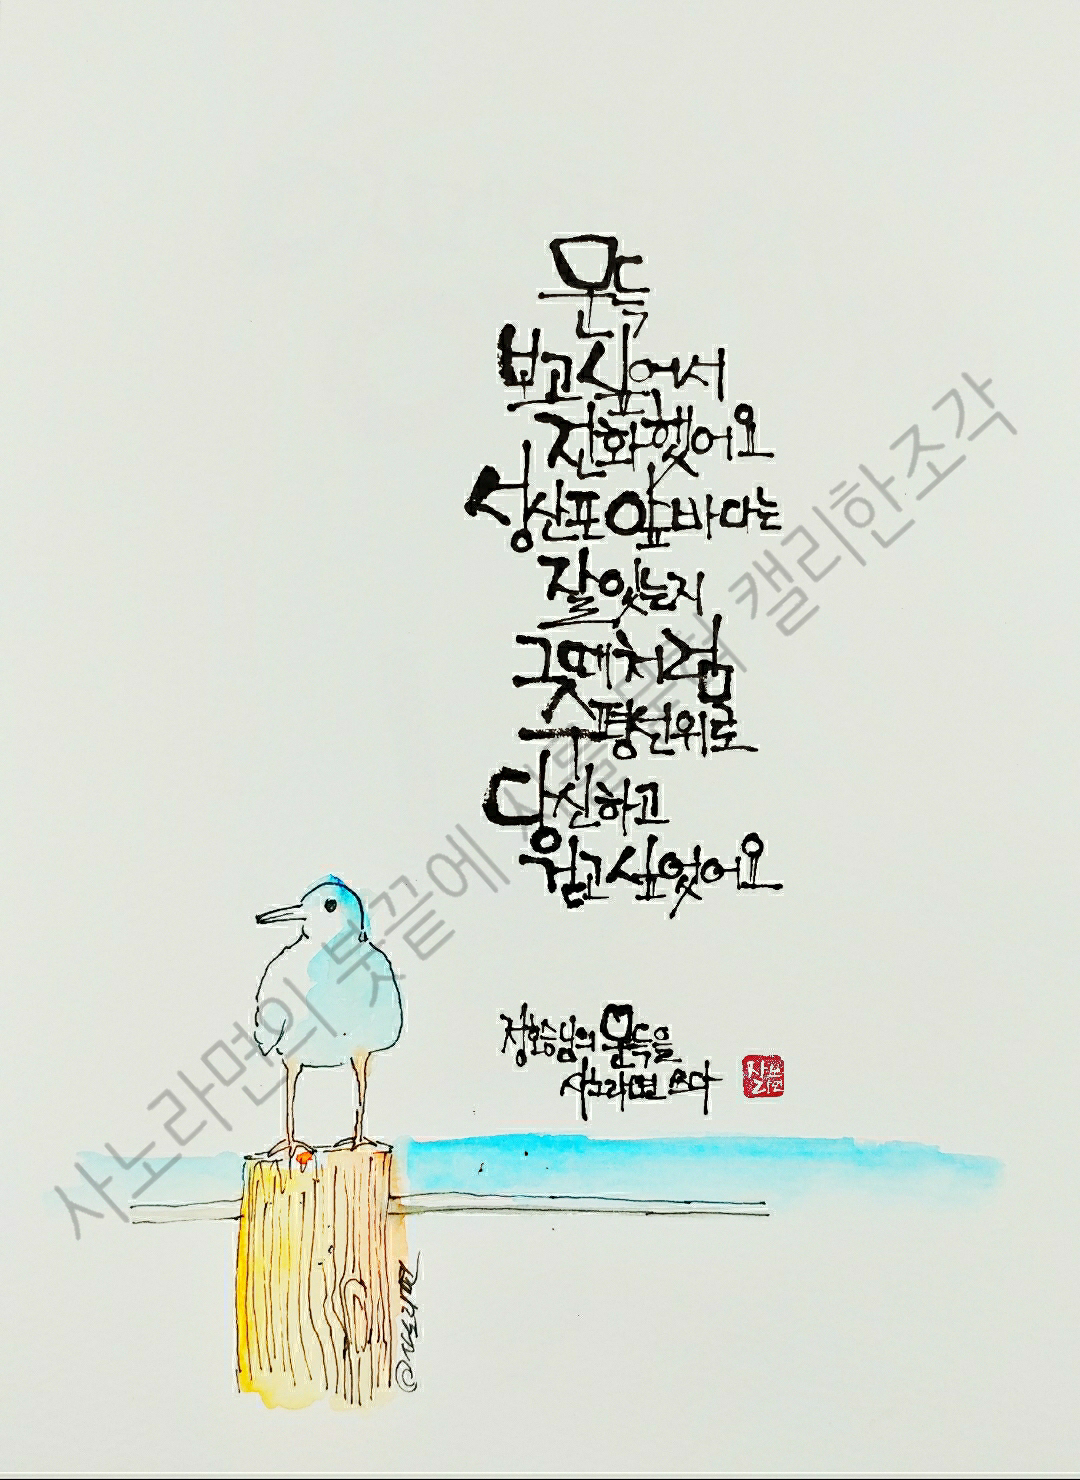 문득
보고싶어서
전화했어요
성산포앞바다는
잘있는지
그때처럼
수평선위로
당신하고
걷고싶었어요
정호승님의 문득을
사노라면 쓰다
사노라면의 붓끝에 캘리한조각